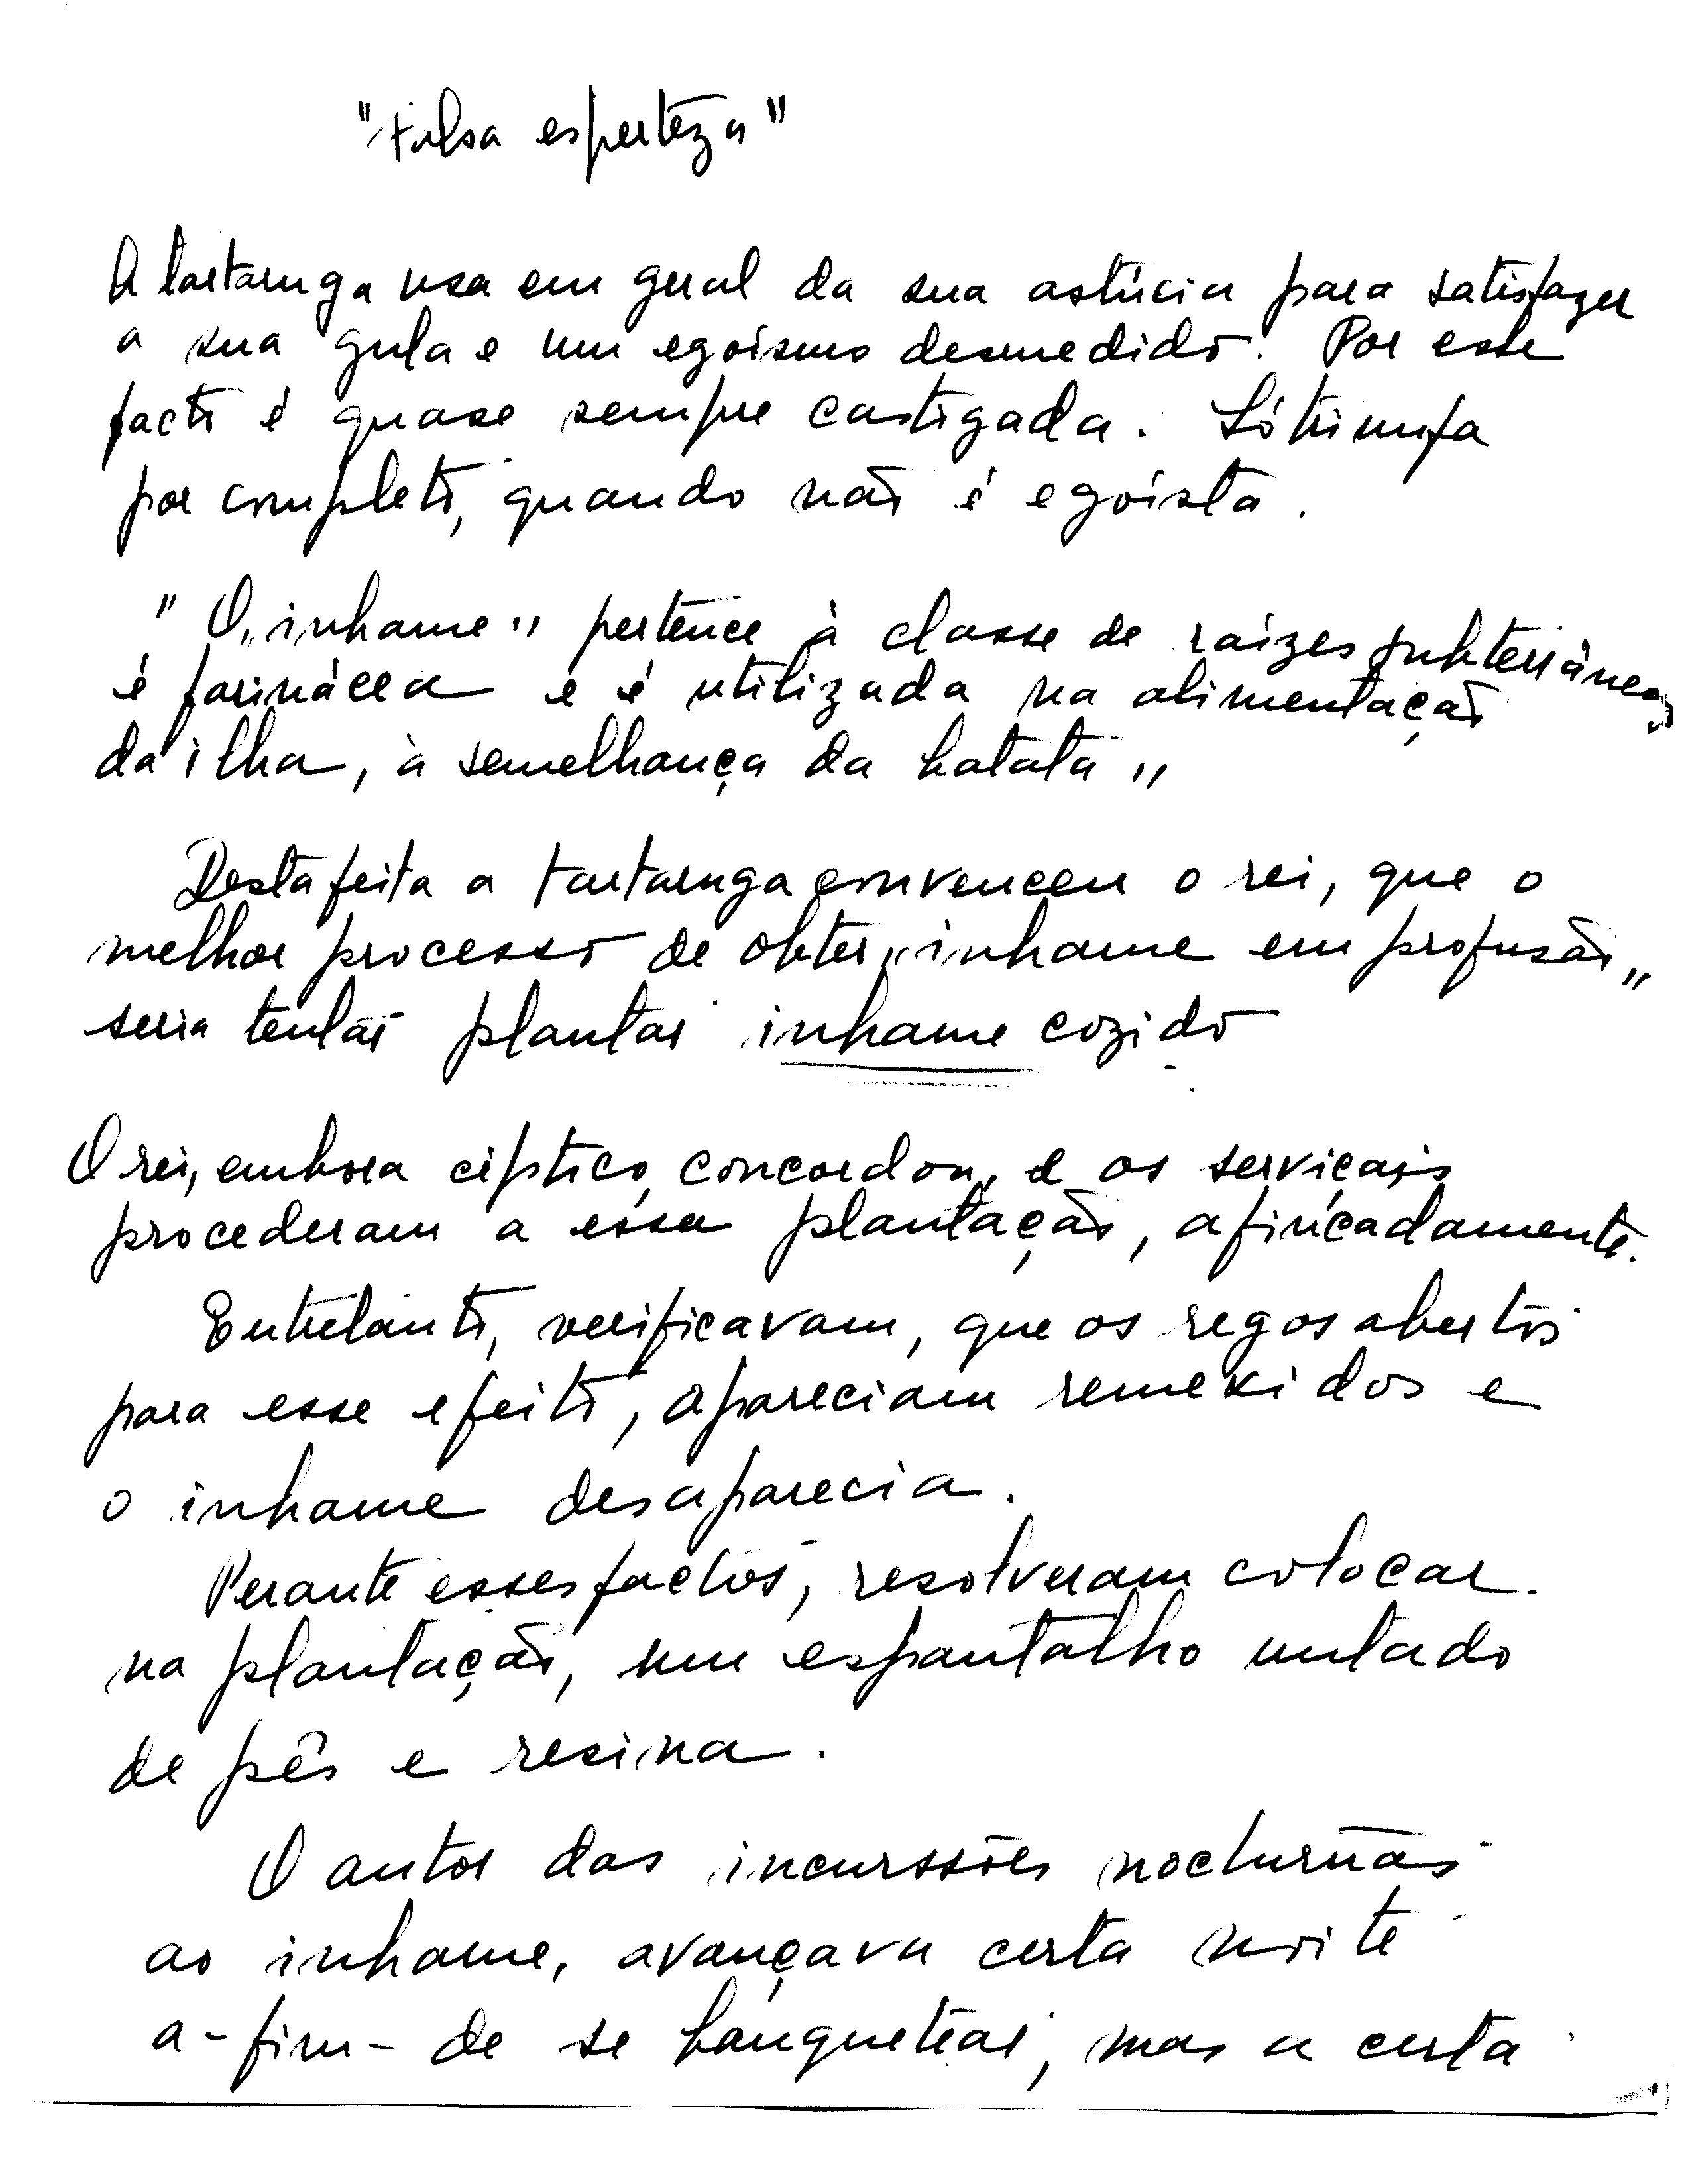 "Falsa esperteza"
A tartaruga usa em geral da sua astúcia para satisfazer
a sua gula e um egoísmo desmedido. Por este
facto é quase sempre castigada. Só triunfa
por completo, quando não é egoísta.
" O "inhame" pertence à classe de raízes subterrâneas
é farinácea e é utilizada na alimentação
da ilha, à semelhança da batata "
Desta feita a tartaruga convenceu o rei, que o
melhor processo de obter "inhame em profusão"
seria tentar plantar inhame cozido
O rei, embora céptico, concordou, e os serviçais
procederam a essa plantação, afincadamente.
Entretanto, verificavam, que os regos abertos
para esse efeito, apareciam remexidos e
o inhame desaparecia.
Perante esses factos, resolveram colocar
na plantação, um espantalho untado
de pês e resina.
O autor das incurssões nocturnas
ao inhame, avançava certa noite
a-fim-de se banquetear, mas a certa